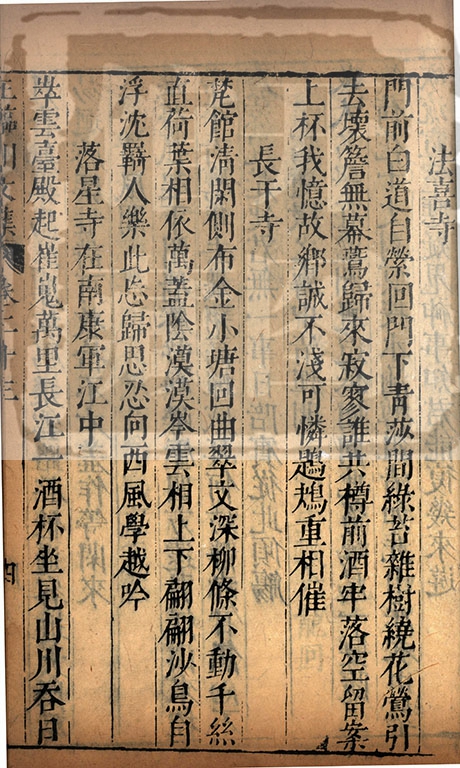 法喜寺
門前白道自縈回門下青莎間綠苔雜樹繞花鶯引
去壞簷無幕鷰歸來寂寥誰共樽前酒牢落空留案
上杯我憶故鄉誠不淺可憐鶗鴂重相催
長干寺
梵館清閑側布金小塘回曲翠文深柳條不動千絲
直荷葉相依萬蓋陰漠漠岑雲相上下翩翩沙鳥自
浮沈羇人樂此忘歸思忍向西風學越吟
落星寺在南康軍江中
崒雲臺殿起崔嵬萬里長江一酒杯坐見山川吞日
王臨川文集 卷二十三 四